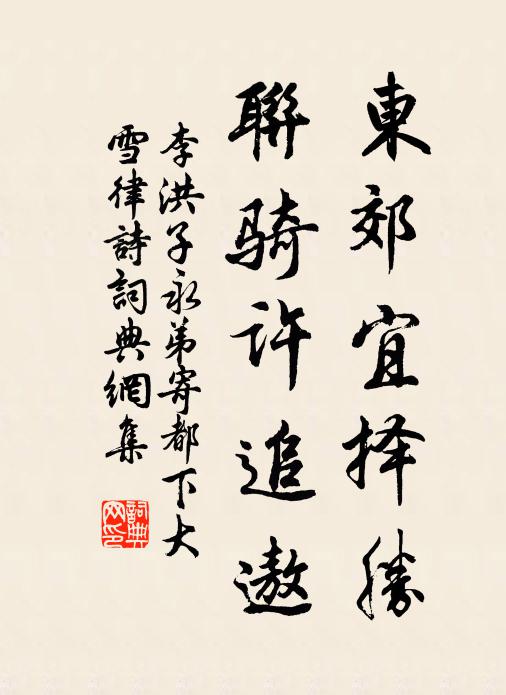 東郊宜择勝
聯骑许追遨
李洪子永弟寄都下大
雪律詩詞典網集
詞典
网印